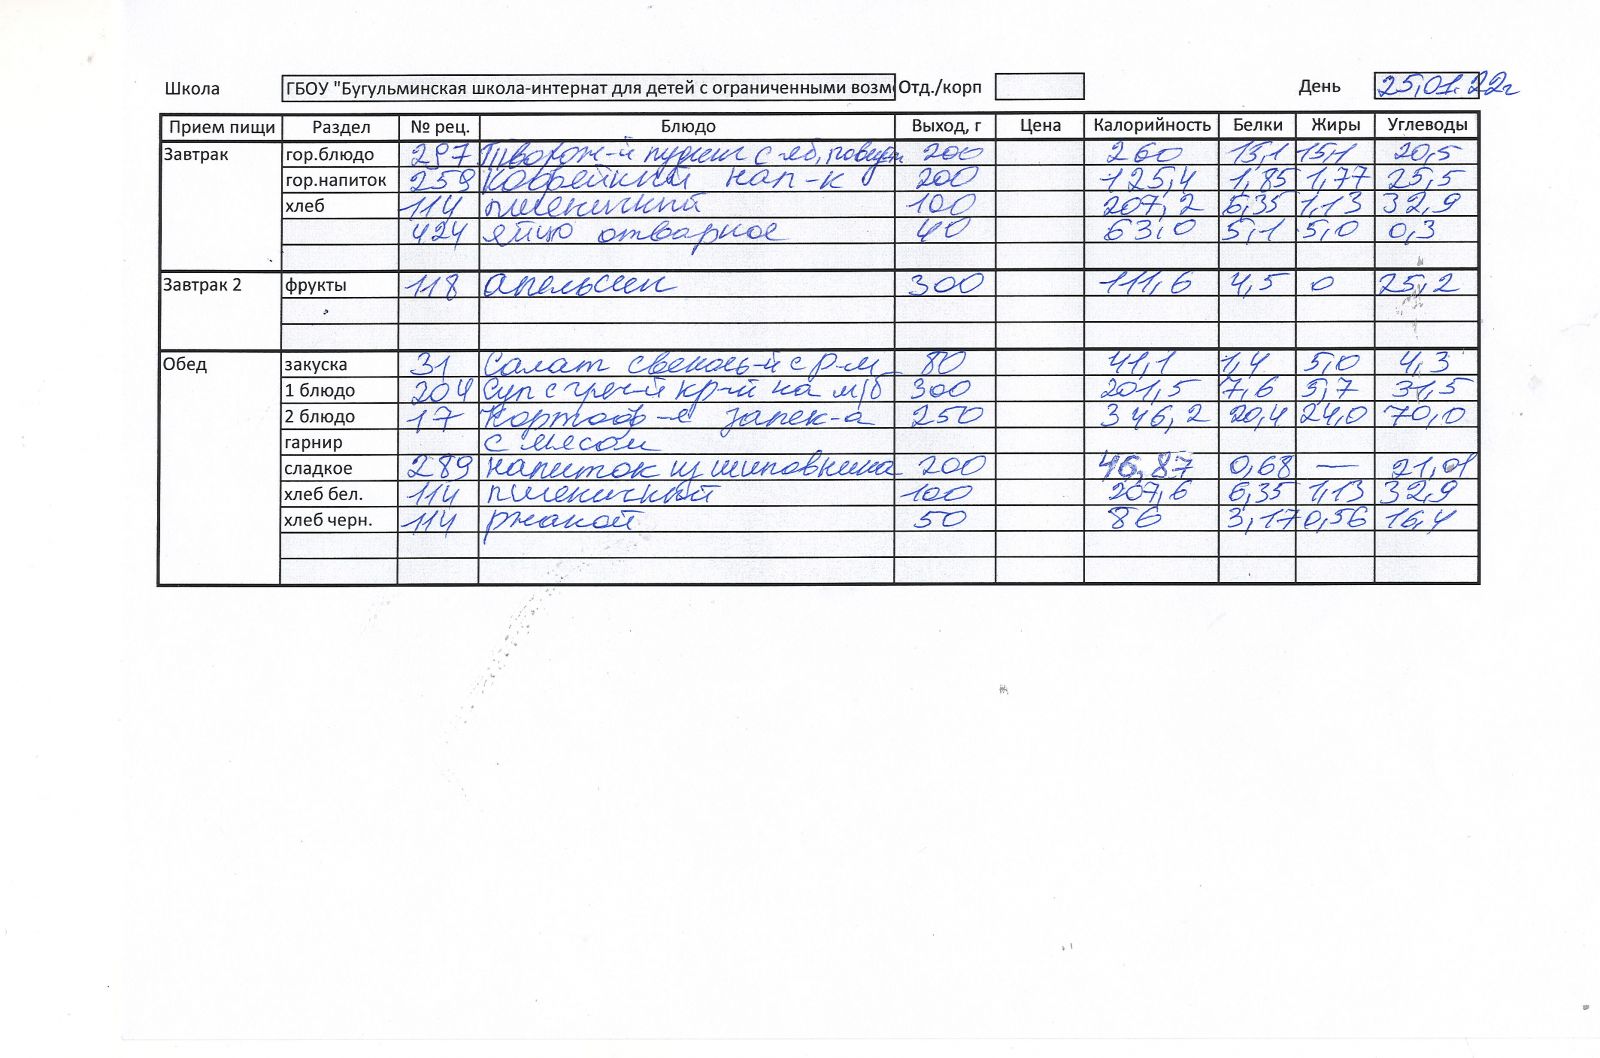 Школа ГБОУ "Бугульминская школа-интернат для детей с ограниченными возм Отд./корп День 25,01.22г
Прием пищи Раздел № рец. Блюдо Выход, г Цена Калорийность Белки Жиры Углеводы
Завтрак гор.блюдо 297 Творож-й пудинг с яб, повидл 200 260 15,1 15,1 20,5
гор.напиток 259 кофейный нап-к 200 125,4 1,85 1,77 25,5
хлеб 114 пшеничный 100 207,2 6,35 1,13 32,9
424 яйцо отварное 40 63,0 5,1 5,0 0,3
Завтрак 2 фрукты 118 апельсин 300 111,6 4,5 0 25,2
Обед закуска 31 Салат свеколь-й с р-м 80 41,1 1,4 5,0 4,3
1 блюдо 204 Суп с греч-й кр-й на м/б 300 201,5 7,6 5,7 31,5
2 блюдо 17 Картоф-я запек-а 250 346,2 20,4 24,0 70,0
гарнир с мясом
сладкое 289 напиток из шиповника 200 46,87 0,68 — 21,01
хлеб бел. 114 пшеничный 100 207,6 6,35 1,13 32,9
хлеб черн. 114 ржаной 50 86 3,17 0,56 16,4